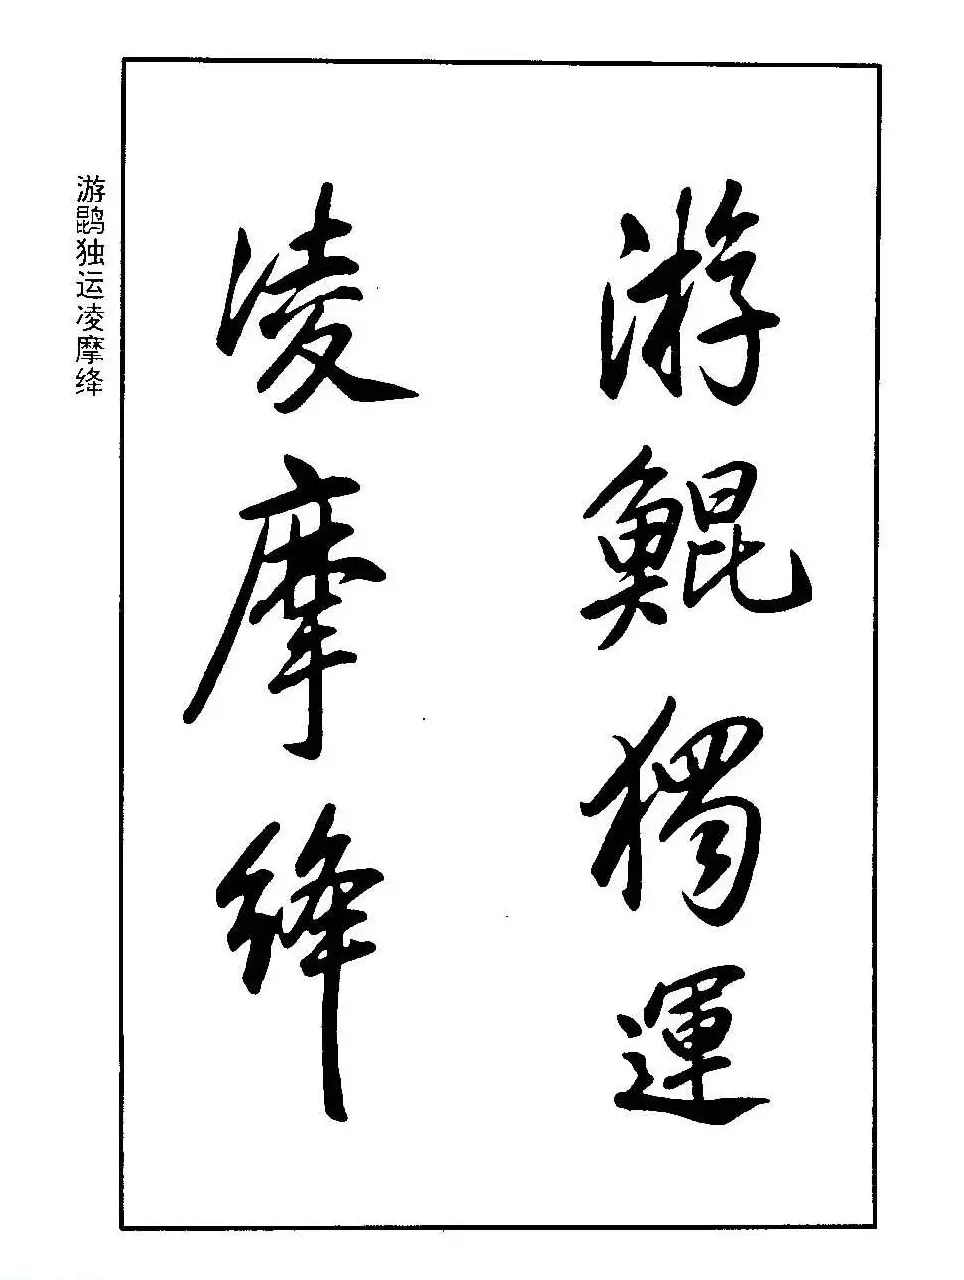 游鯤獨運
凌摩絳
游鹍独运凌摩绛